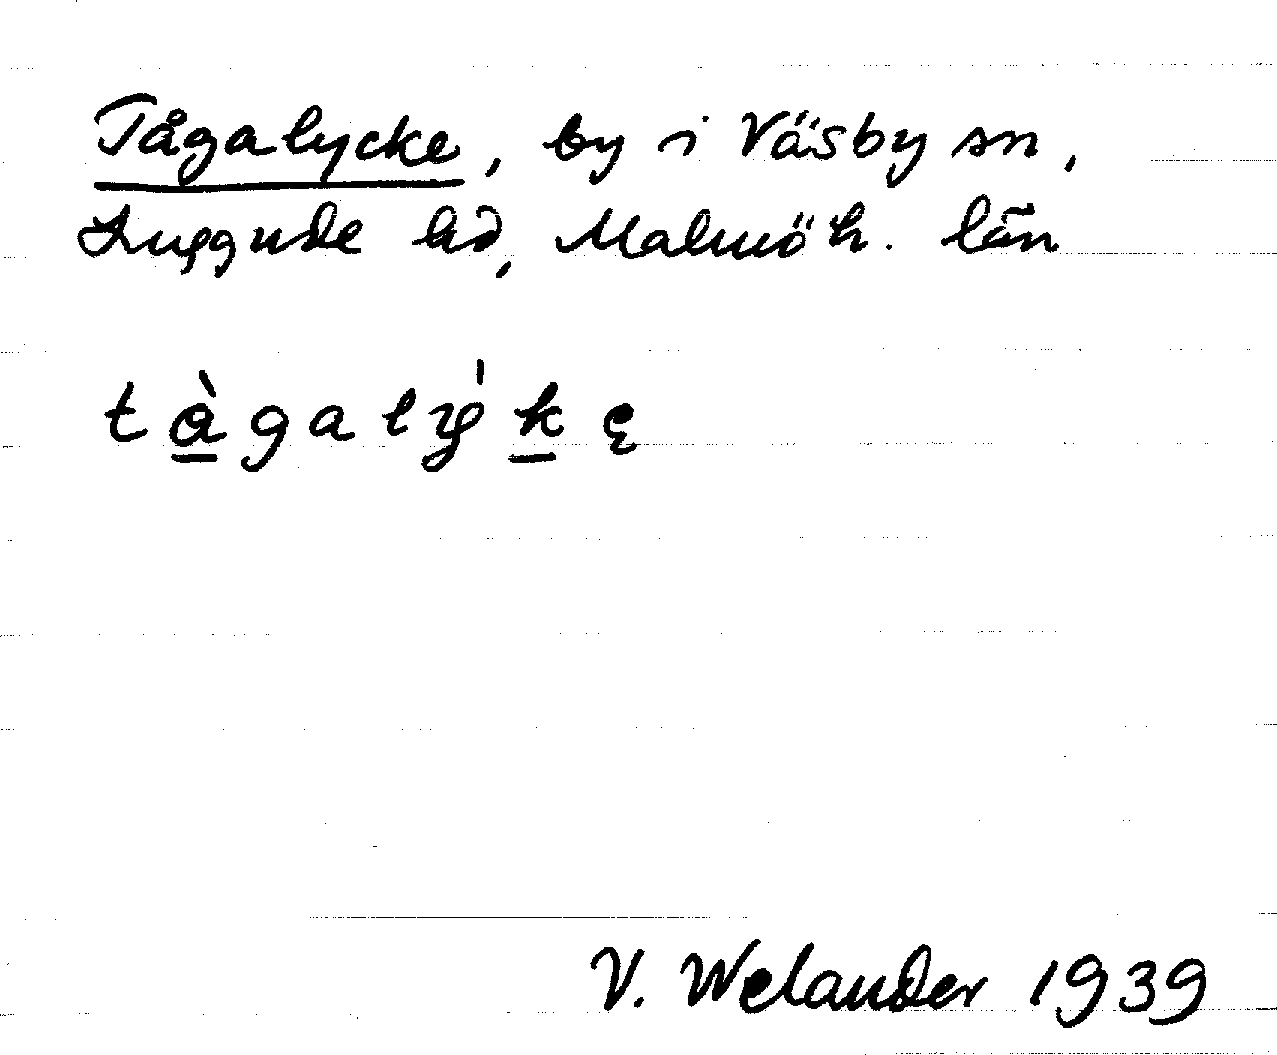 Tågalycke, by i Väsby sn,
Luggude hd, Malmöh. län
tàgalyk̲ę
V. Welander 1939